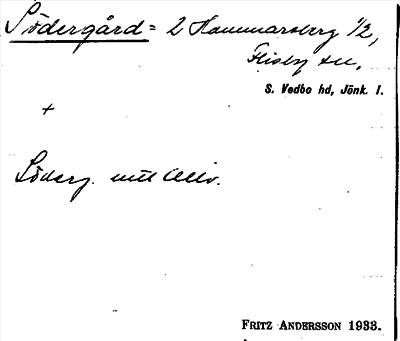 Södergård = 2 Hammarsberg 1/2,
Flisby sn,
S. Vedbo hd, Jönk. l.
+
Söderg.
FRITZ ANDERSSON 1933.